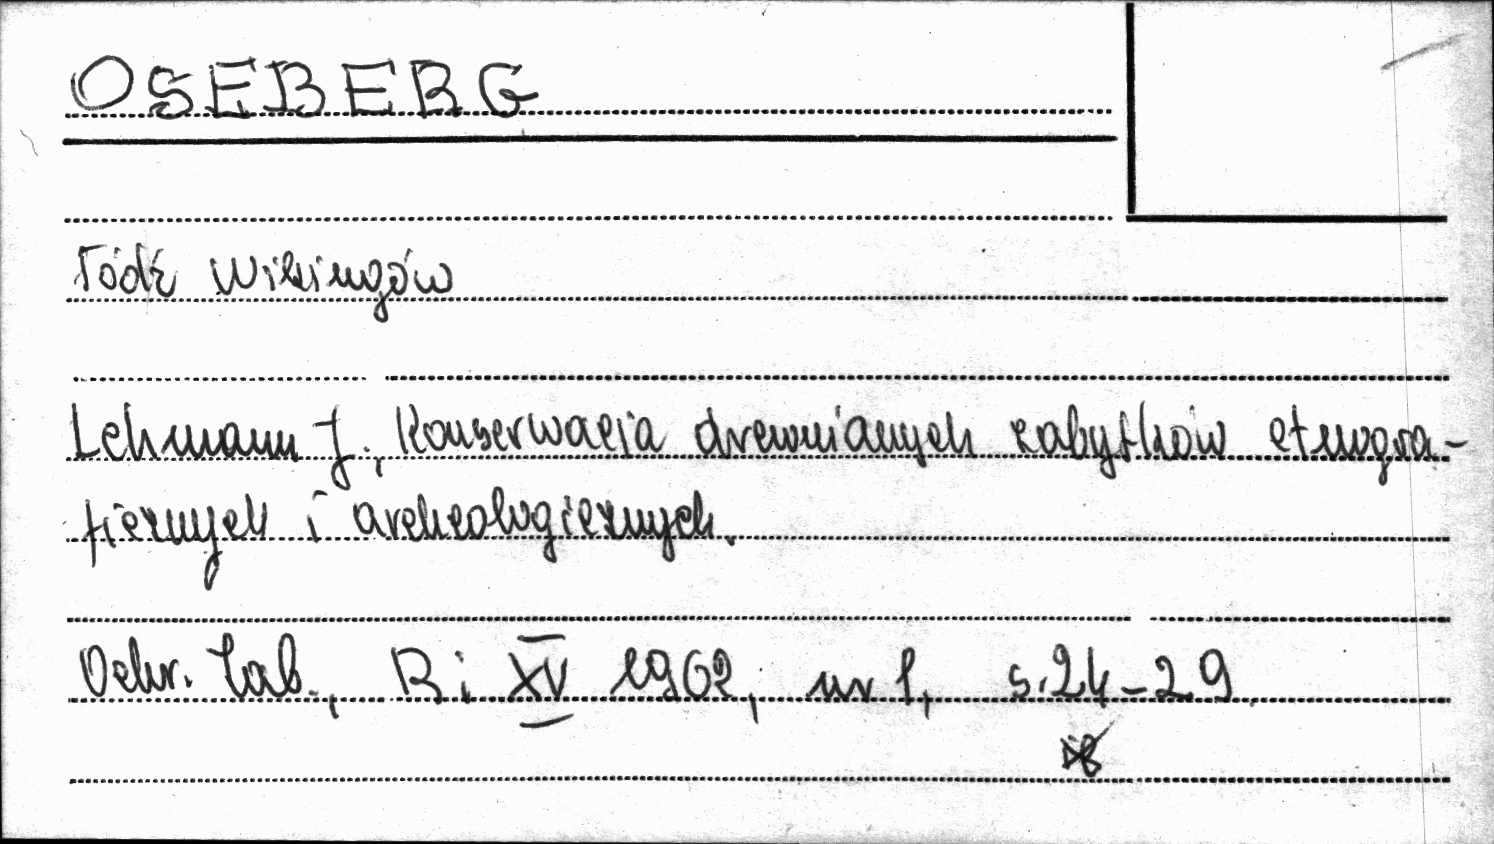 OSEBERG
Łódź Wikingów
Lehmann J., Konserwacja drewnianych zabytków etnogra-
ficznych i archeologicznych.
Ochr. Zab., R: XV 1962, nr 1, s. 24-29